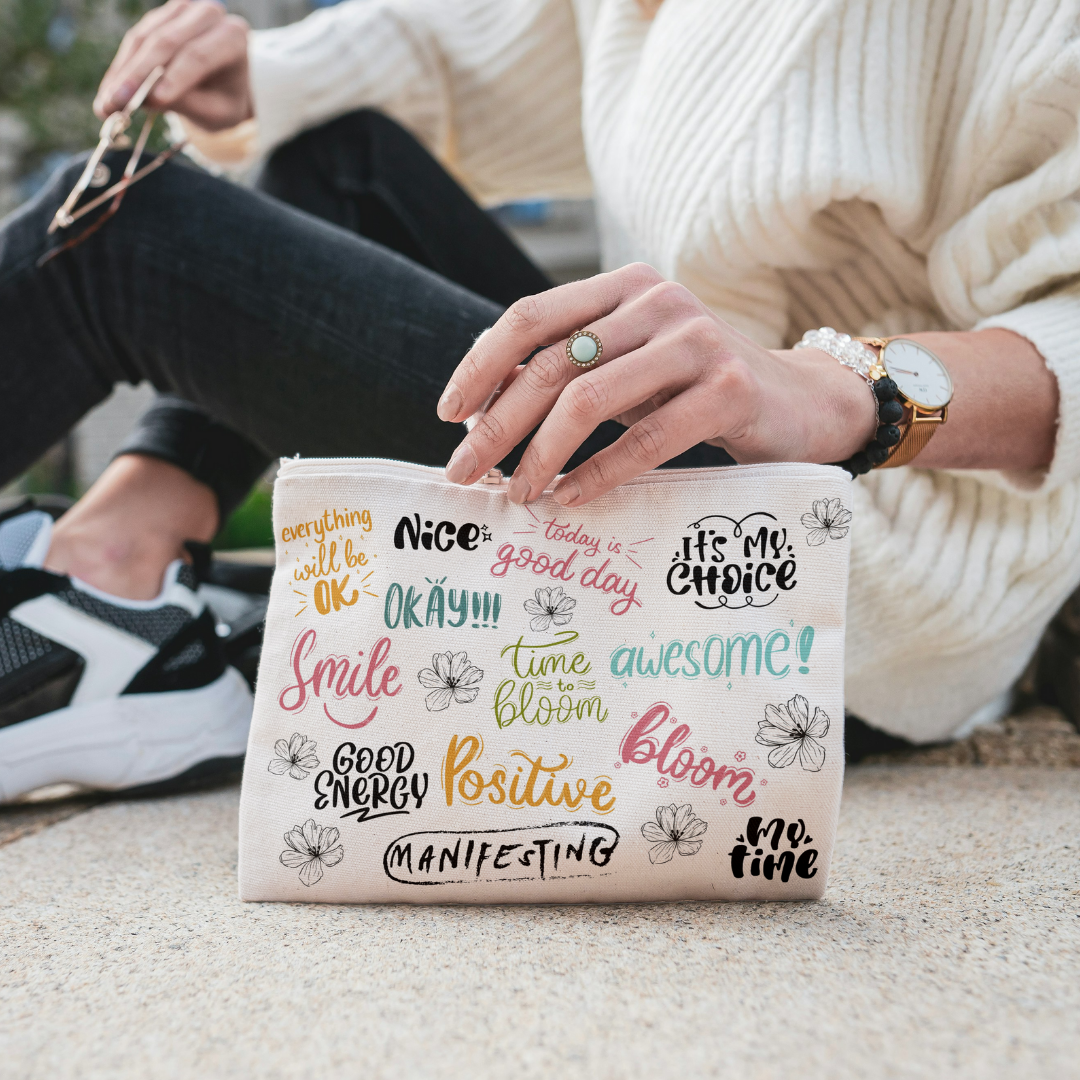 everything
will be
OK
NiCe
today is
good day
it's my
CHOiCE
OKAY!!!
Smile
time
to
bloom
awesome!
GOOD
ENERGY
Positive
bloom
MANIFESTING
My
time